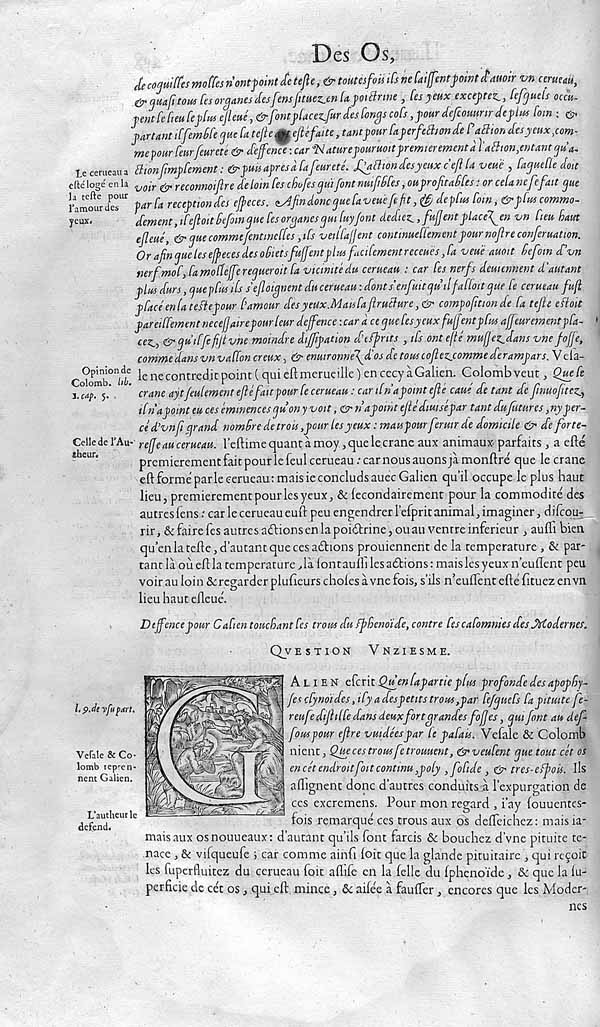 Des Os,
de coquilles molles n'ont point de teste, & toutesfois ils ne laissent point d'auoir vn cerueau,
& quasi tous les organes des sens situez en la poictrine, les yeux exceptez, lesquels occu-
pent le lieu le plus esleué, & sont placez sur des longs cols, pour descouurir de plus loin : &
partant il semble que la teste a esté faite, tant pour la perfection de l'action des yeux, com-
me pour leur seureté & deffence : car Nature pouruoit premierement à l'action, entant qu'a-
ction simplement : & puis apres à la seureté. L'action des yeux c'est la veuë, laquelle doit
Le cerueau a
esté logé en la
la teste pour
l'amour des
yeux.
voir & reconnoistre de loin les choses qui sont nuisibles, ou profitables : or cela ne se fait que
par la reception des especes. Afin donc que la veuë se fit, & de plus loin, & plus commo-
dement, il estoit besoin que les organes qui luy sont dediez, fussent placez en vn lieu haut
esleué, & que comme sentinelles, ils veillassent continuellement pour nostre conseruation.
Or afin que les especes des obiets fussent plus facilement receuës, la veuë auoit besoin d'vn
nerf mol, la mollesse requeroit la vicinité du cerueau : car les nerfs deuiennent d'autant
plus durs, que plus ils s'esloignent du cerueau : dont s'ensuit qu'il falloit que le cerueau fust
placé en la teste pour l'amour des yeux. Mais la structure, & composition de la teste estoit
pareillement necessaire pour leur deffence : car à ce que les yeux fussent plus asseurement pla-
cez, & qu'il se fist vne moindre dissipation d'esprits, ils ont esté mussez dans vne fosse,
comme dans vn vallon creux, & enuironnez d'os de tous costez comme de rampars. Vesa-
Opinion de
Colomb. lib.
1. cap. 5.
le ne contredit point (qui est merueille) en cecy à Galien. Colomb veut, Que le
crane ayt seulement esté fait pour le cerueau : car il n'a point esté caué de tant de sinuositez,
il n'a point eu ces éminences qu'on y voit, & n'a point esté diuisé par tant du sutures, ny per-
cé d'vn si grand nombre de trous, pour les yeux : mau pour seruir de domicile & de forte-
Celle de l'Au-
theur.
resse au cerueau. I'estime quant à moy, que le crane aux animaux parfaits, a esté
premierement fait pour le seul cerueau : car nous auons jà monstré que le crane
est formé par le cerueau : mais ie concluds auec Galien qu'il occupe le plus haut
lieu, premierement pour les yeux, & secondairement pour la commodité des
autres sens : car le cerueau eust peu engendrer l'esprit animal, imaginer, discou-
rir, & faire ses autres actions en la poictrine, ou au ventre inferieur, aussi bien
qu'en la teste, d'autant que ces actions prouiennent de la temperature, & par-
tant là où est la temperature, là sont aussi les actions : mais les yeux n'eussent peu
voir au loin & regarder plusieurs choses à vne fois, s'ils n'eussent esté situez en vn
lieu haut esleué.
Deffence pour Galien touchant les trous du sphenoïde, contre les calomnies des Modernes.
QVESTION VNZIESME.
l. 9. de vsu part.
GALIEN escrit Qu'en la partie plus profonde des apophy-
ses clynoïdes, il y a des petits trous, par lesquels la pituite se-
reuse distille dans deux fort grandes fosses, qui sont au des-
sous pour estre vuidées par le palais. Vesale & Colomb
Vesale & Co-
lomb repren-
nent Galien.
nient, Que ces trous se trouuent, & veulent que tout cét os
en cét endroit soit continu, poly, solide, & tres-espois. Ils
assignent donc d'autres conduits à l'expurgation de
ces excremens. Pour mon regard, i'ay souuentes-
L'autheur le
defend.
fois remarqué ces trous aux os desseichez : mais ia-
mais aux os nouueaux : d'autant qu'ils sont farcis & bouchez d'vne pituite te-
nace, & visqueuse ; car comme ainsi soit que la glande pituitaire, qui reçoit
les superfluitez du cerueau soit assise en la selle du sphenoïde, & que la su-
perficie de cét os, qui est mince, & aisée à fausser, encores que les Moder-
nes